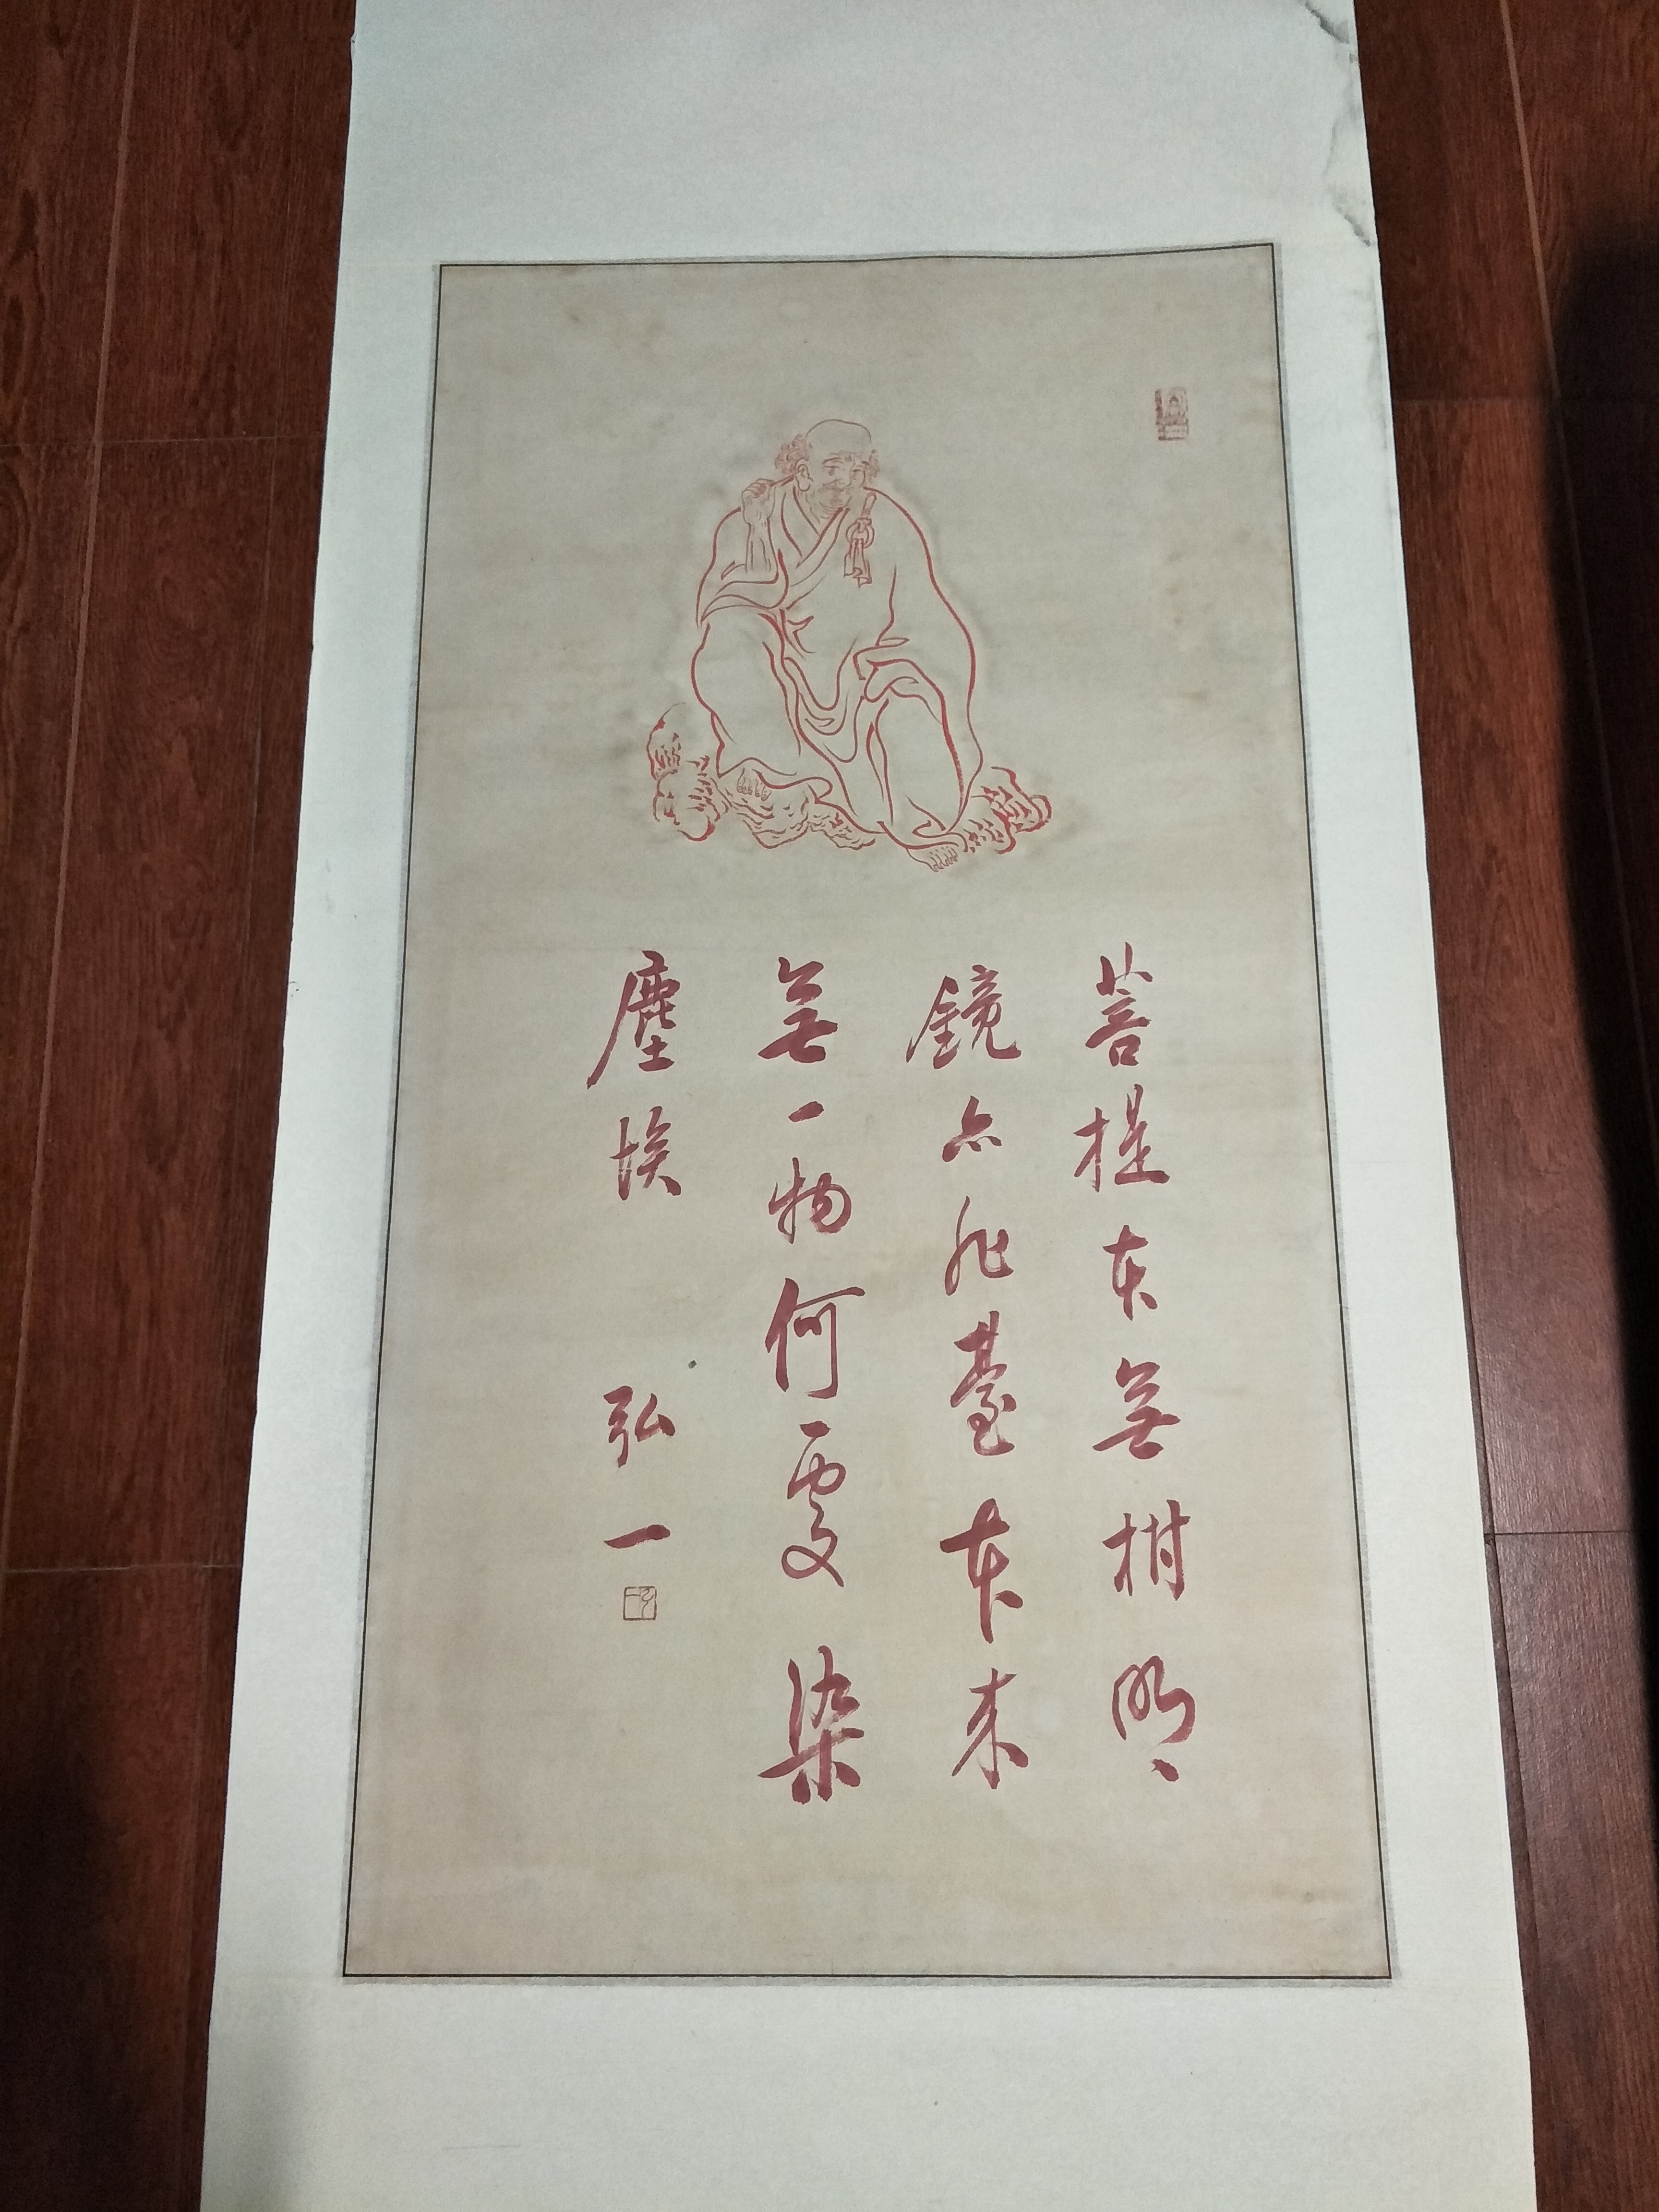 菩提本無樹明
鏡亦非臺本来
無一物何處染
塵埃
弘一